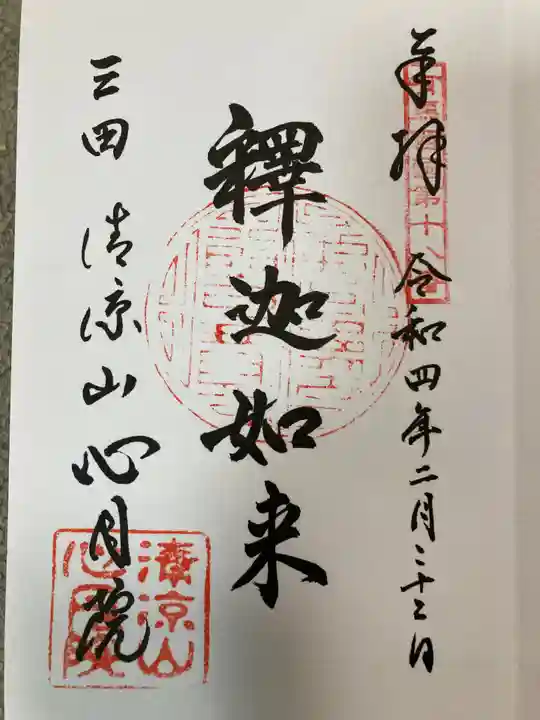 奉拝 令和四年二月二十二日
釋迦如来
三田 清凉山心月院
清凉山
心月院